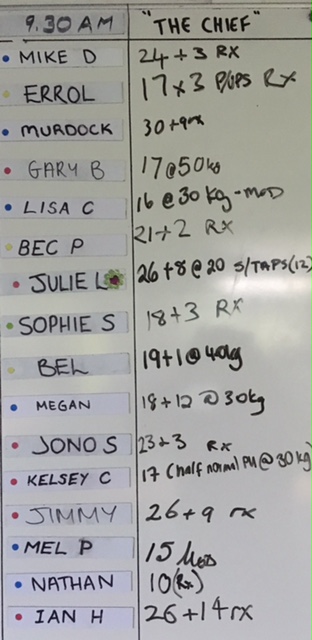 9.30 AM "THE CHIEF"
MIKE D 24 + 3 RX
ERROL 17 x 3 P/UPS RX
MURDOCK 30+9rx
GARY B 17@50kg
LISA C 16 @ 30 kg - MOD
BEC P 21+2 RX
JULIE L 26+8@20 S/TAPS(12)
SOPHIE S 18+3 RX
BEL 19+1@40kg
MEGAN 18+12 @ 30kg
JONO S 23+3 RX
KELSEY C 17 (half normal PU @ 30 kg)
JIMMY 26+9 rx
MEL P 15 Mod
NATHAN 10(Rx)
IAN H 26+14rx